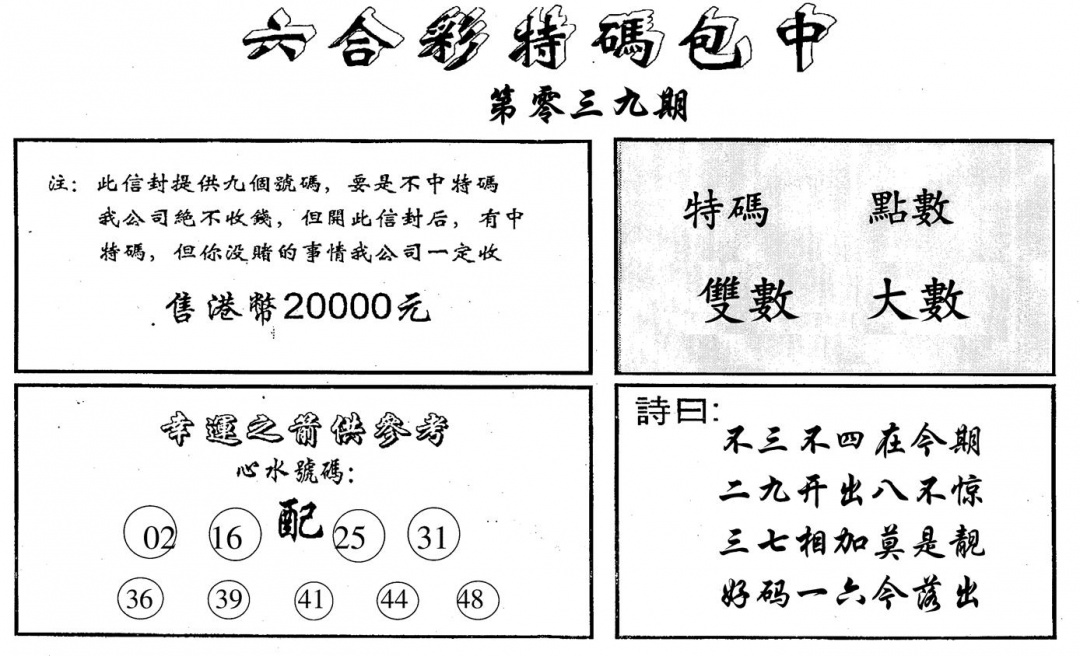 六合彩特碼包中
第零三九期
注：此信封提供九個號碼，要是不中特碼
我公司絕不收錢，但開此信封后，有中
特碼，但你没賭的事情我公司一定收
售港幣20000元
特碼 點數
雙數 大數
幸運之箭供參考
心水號碼：
02 16 配 25 31
36 39 41 44 48
詩曰：
不三不四在今期
二九开出八不惊
三七相加莫是靚
好码一六今落出